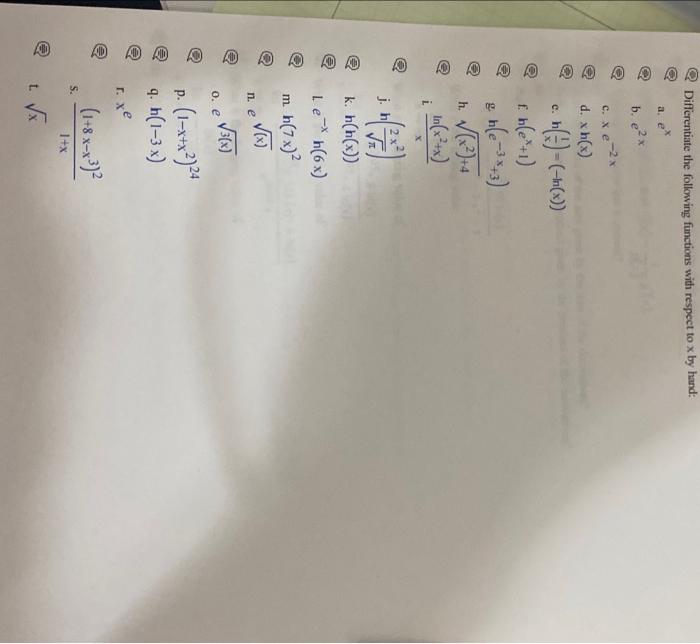 Differentiate the following functions with respect to x by hand:
a. e^x
b. e^{2x}
c. x e^{-2x}
d. x ln(x)
e. ln(1/x) = (-ln(x))
f. ln(e^x+1)
g. ln(e^{-3x}+3)
h. √((x^2)+4)
i. ln(x^2+x)/x
j. ln(2x^2/√π)
k. ln(ln(x))
l. e^{-x} ln(6x)
m. ln(7x)^2
n. e^{√(x)}
o. e^{√3(x)}
p. (1-x+x^2)^{24}
q. ln(1-3x)
r. x^e
s. (1+8x-x^3)^2/(1+x)
t. √x